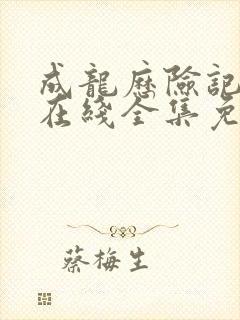 成龍歷險記
在綫全集免
蔡梅生